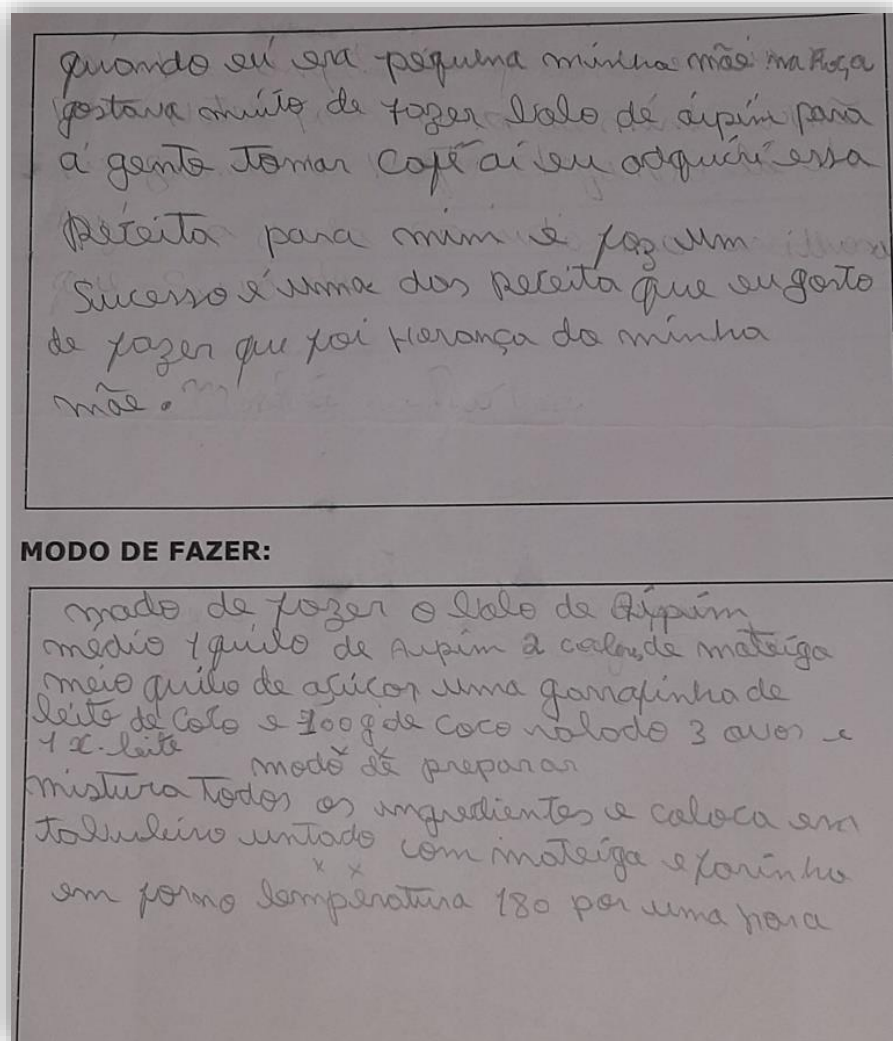 quando eu era pequena minha mãe na Roça
gostava muito de fazer bolo de aipim para
a gente tomar café aí eu adquiri essa
Receita para mim e faz um
Sucesso é uma das Receita que eu gosto
de fazer que foi Herança da minha
mãe.
MODO DE FAZER:
mado de fazer o bolo de Aipim
médio 1 quilo de Aupim 2 de mateiga
meio quilo de açúcar uma garrafinha de
leite de Coco e 100g de Coco ralado 3 ovos e
1 x. leite
modo de preparar
mistura Todos os ingredientes e caloca em
tabuleiro untado com mateiga e farinha
em forno temperatura 180 por uma hora